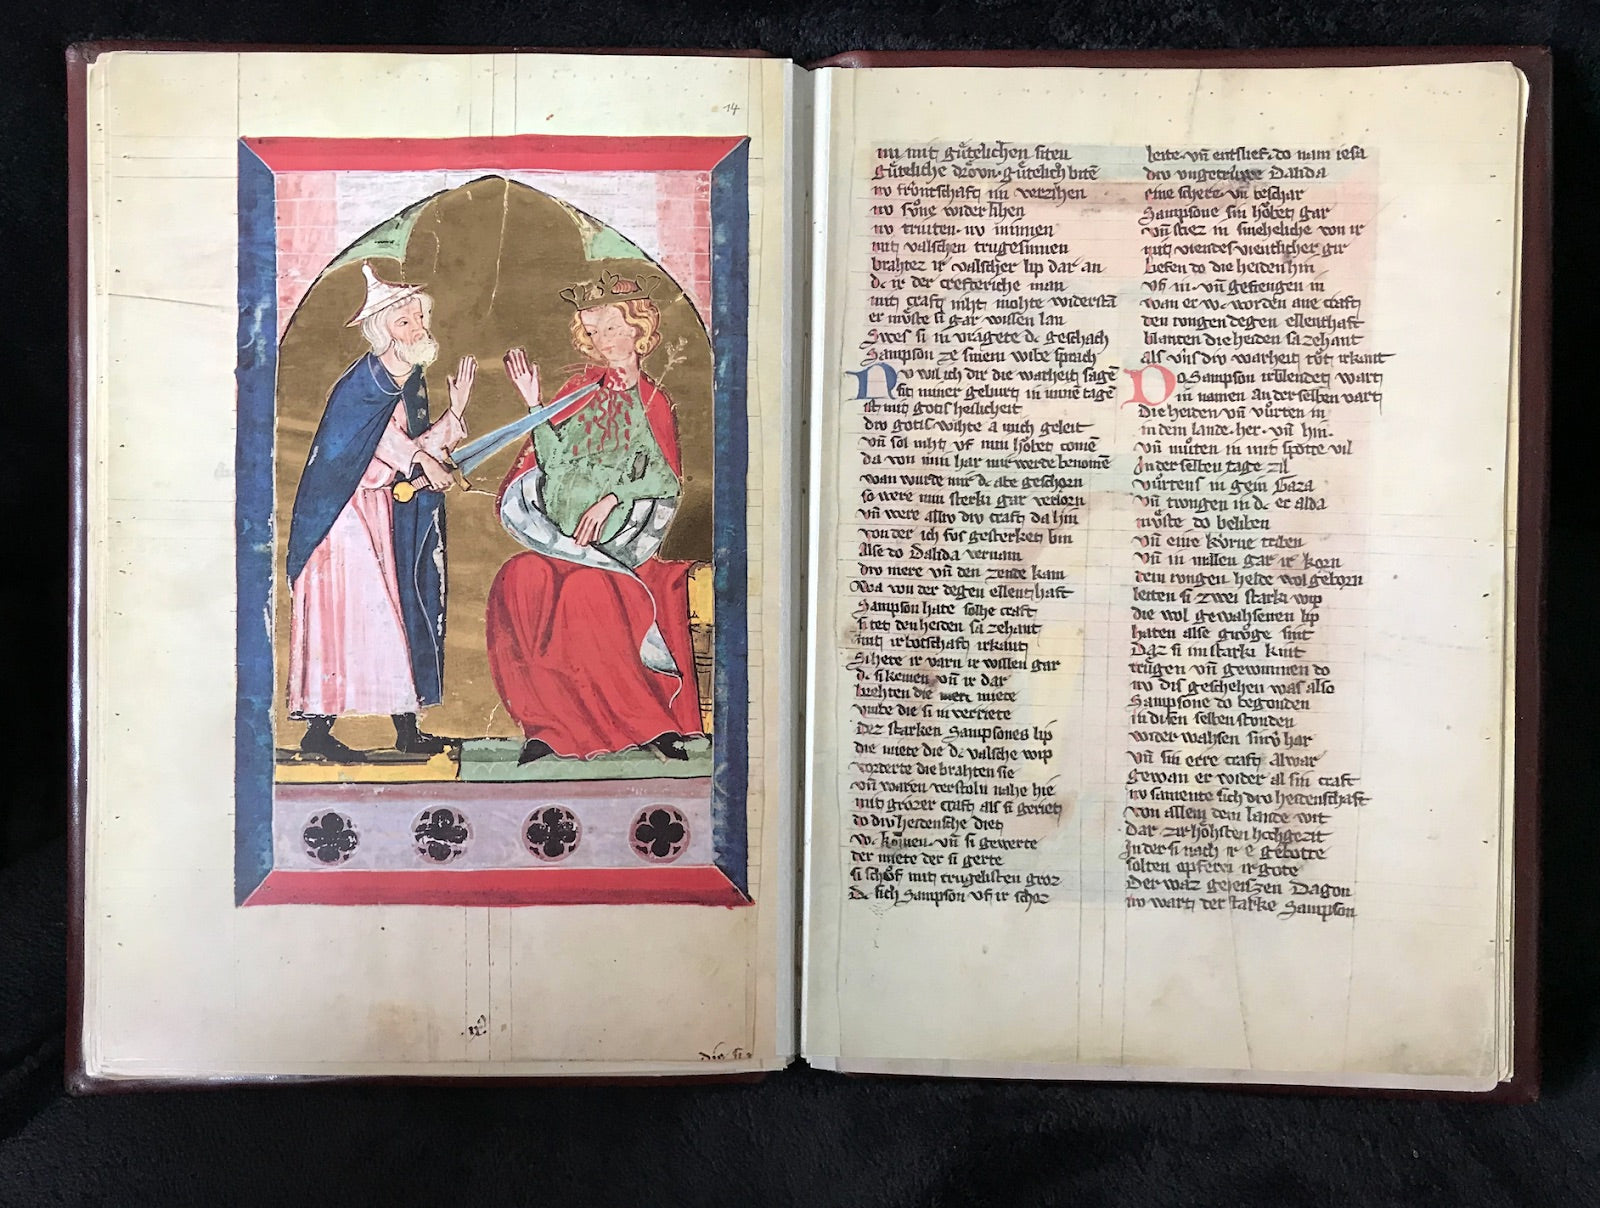 14
die si
nu mit gůtelichen siten
gůteliche drôvn· gůtelich bitē
nv frůntschaft nu verzihen
nv sůne wider lihen
nv truten· nv minnen
mit valschen trugesinnen
brahtez ir valscher lip dar an
dc ir der creftriche man
mit craft niht mohte widerstā
er můste si gar wissen lan
Swes si in vragete dc geschach
Sampson ze sinem wibe sprach
Nv wil ich dir die warheit sagē
sit miner geburt in minē tagē
ist mit gotis heilicheit
div gotis wihte a mich geleit
vn̄ sol niht vf min hǒbet comē
da von min har mir werde benomē
wan wurde mir dc abe geschorn
so were min sterki gar verlorn
vn̄ were alliv div craft da hin
von der ich sus gesterket bin
Alse do Dalida vernam
div mere vn̄ den ende kam
Wa von der degen ellenthaft
Sampson hate solhe craft
si tet den heiden sa zehant
mit ir botschaft irkant
Si hete ir varn ir willen gar
dc si kemen vn̄ ir dar
brehten die miete
vmbe die si in verriete
Dez starken Sampsones lip
die miete die dc valsche wip
vorderte die brahten sie
vn̄ waren verstoln nahe hie
mit grozer craft als si geriet
do div heidensche diet
vn̄ si gewerte
der miete der si gerte
si schůf mit trugelisten groz
dc sich Sampson vf ir schoz
leite· vn̄ entslief· do nam iesa
div vngetruwe Dalida
eine schere· vn̄ beschar
Sampsone sin hǒbet gar
vn̄ stiez in sinekeliche von ir
mit viendes vientlicher gir
Liefen do die heiden hin
vf in· vn̄ gefiengen in
wan er wc worden ane craft
den iungen degen ellenthaft
blanten die heiden sa zehant
als vns div warheit tůt irkant
Do Sampson irblendet wart
in namen an der selben vart
Die heiden vn̄ vůrten in
in dem lande· her· vn̄ hin·
vn̄ můten in mit spotte vil
In der selben tage zil
vůrtens in gein Gaza
vn̄ twngen in dc er alda
můste do beliben
vn̄ eine kǒrne triben
vn̄ in millen gar ir korn
dem iungen helde wol geborn
leiten si zwei starki wip
die wol gewahsenen lip
haten alse grǒze sint
Daz si im starki kint
trůgen vn̄ gewunnen do
nv dis geschehen was also
Sampsone do begonden
in disen selben stonden
wider wahsen siniv har
vn̄ sin erre craft Alwar
gewan er wider al sin craft
nv samente sich div heidenschaft
von allem dem lande wit
dar zir hǒhsten hohgezit
In der si nach ir e gebotte
solten opferen ir gote
Der waz geheiszen Dagon
nv wart der starke Sampson